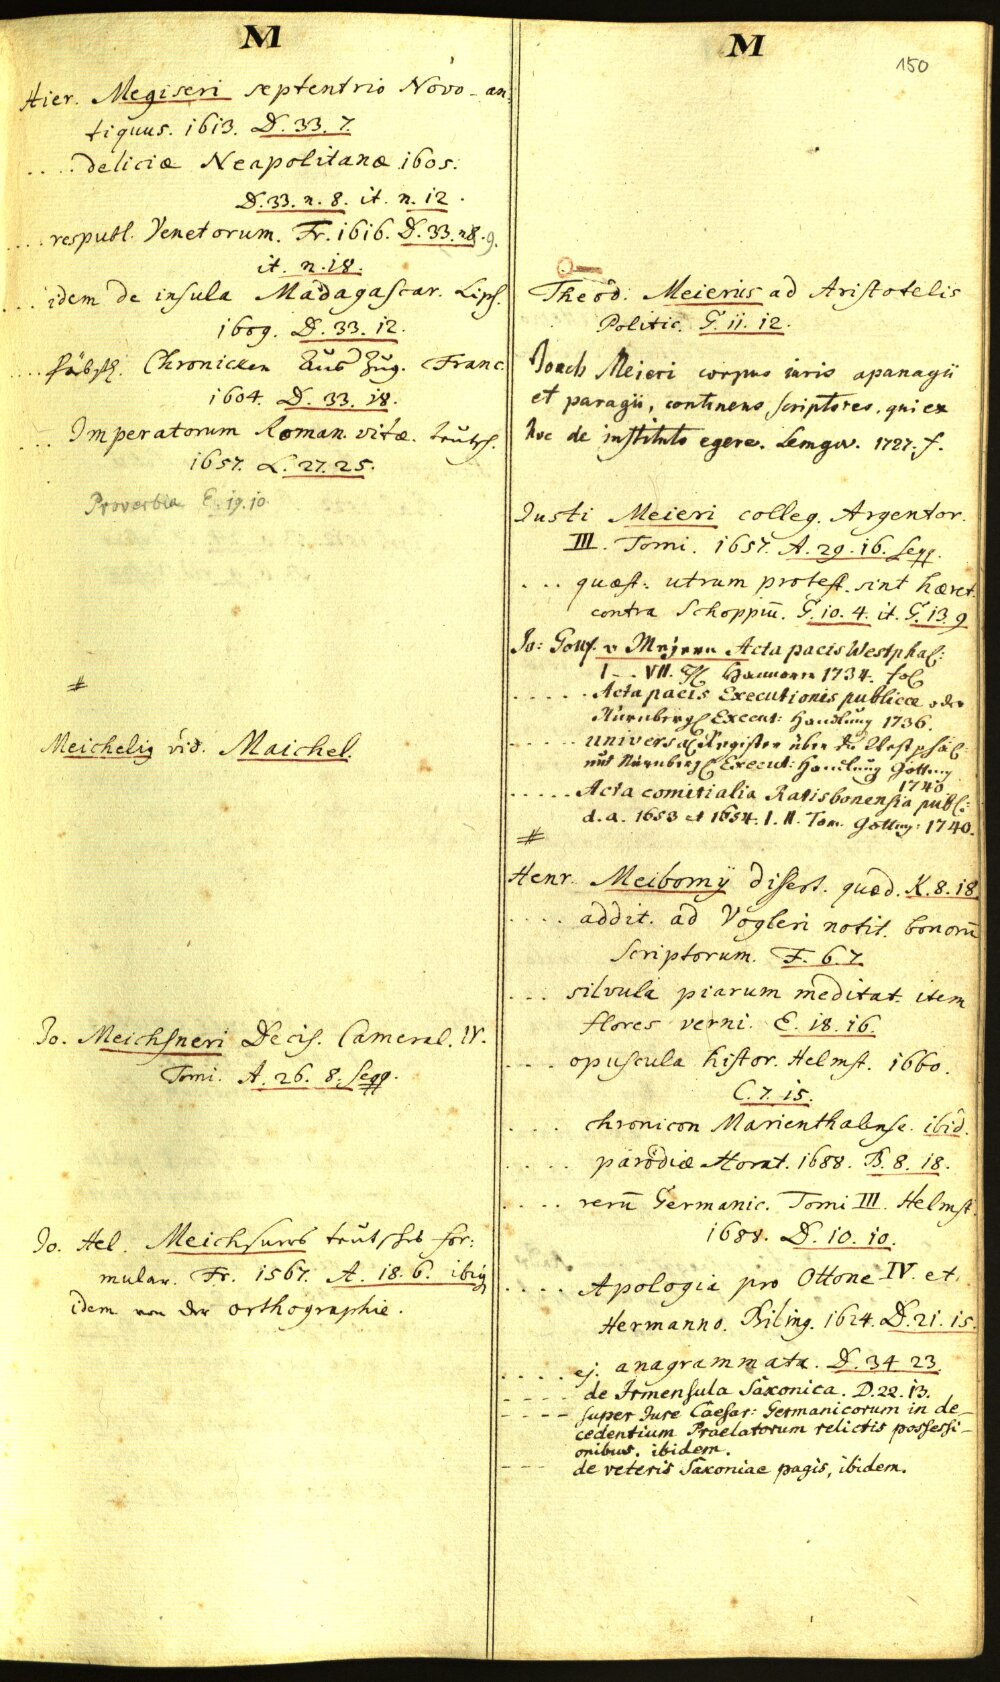 M
Hier. Megiseri septentrio Novo-an-
tiquus. 1613. D. 33. 7.
.... deliciæ Neapolitanæ 1605.
D. 33. n. 8. it. n. 12.
.... respubl. Venetorum. Fr. 1616. D. 33. n 8. 9.
it. n. 18.
... idem de insula Madagascar. Lips.
1609. D. 33. 12.
.... Chronicken Franc.
1604. D. 33. 18.
... Imperatorum Roman. vitæ. teutsch.
1657. L. 27. 25.
Proverbia E. 19. 10.
#
Meichelig vid. Maichel.
Jo. Meichsneri Decis. Cameral. IV.
Tomi. A. 26. 8. seqq.
Jo. Hel. Meichsners teutsches for-
mular. Fr. 1567. A. 18. 6. ibiq
idem von der orthographie.
M
150
Theod. Meierus ad Aristotelis
Politic. G. 11. 12.
Joach Meieri corpus iuris apanagii
et paragii, continens scriptores, qui ex
hoc de instituto egere. Lemgov. 1727. f.
Justi Meieri colleg. Argentor.
III. Tomi. 1657. A. 29. 16. seqq.
... quæst. utrum protest. sint hæret.
contra Schoppiū. G. 10. 4. it. G. 13. 9
Jo: Gottf. v Meyern Acta pacis Westphal:
I -- VII. Hannover 1734. fol
..... Acta pacis Executionis publicæ oder
Nürnbergl Execut: Handlung 1736.
..... Universal Register über die Westphäl:
und Nürnbergl Execut: Handlung Götting
1740
..... Acta comitialia Ratisbonensia publ:
d. a. 1653 et 1654. I. II. Tom. Götting: 1740.
#
Henr. Meibomÿ disert. quæd. K. 8. 18
.... addit. ad Vogleri notit. bonorū
scriptorum. F. 6. 7.
... silvula piarum meditat. item
flores verni. E. 18. 16.
... opuscula histor. Helmst. 1660.
C. 7. 15.
.... chronicon Marienthalense. ibid.
.... parodiæ Horat. 1688. B. 8. 18.
.... rerū Germanic. Tomi III. Helmst.
1688. D. 10. 10.
.... Apologia pro Ottone IV. et
Hermanno. Biling. 1624. D. 21. 15.
.... ej. anagrammata. D. 34 23.
---- de Irmensula Saxonica. D. 22. 13.
---- super Jure Caesar: Germanicorum in de-
cedentium Praelatorum relictis possessi-
onibus. ibidem.
--- de veteris Saxoniae pagis, ibidem.